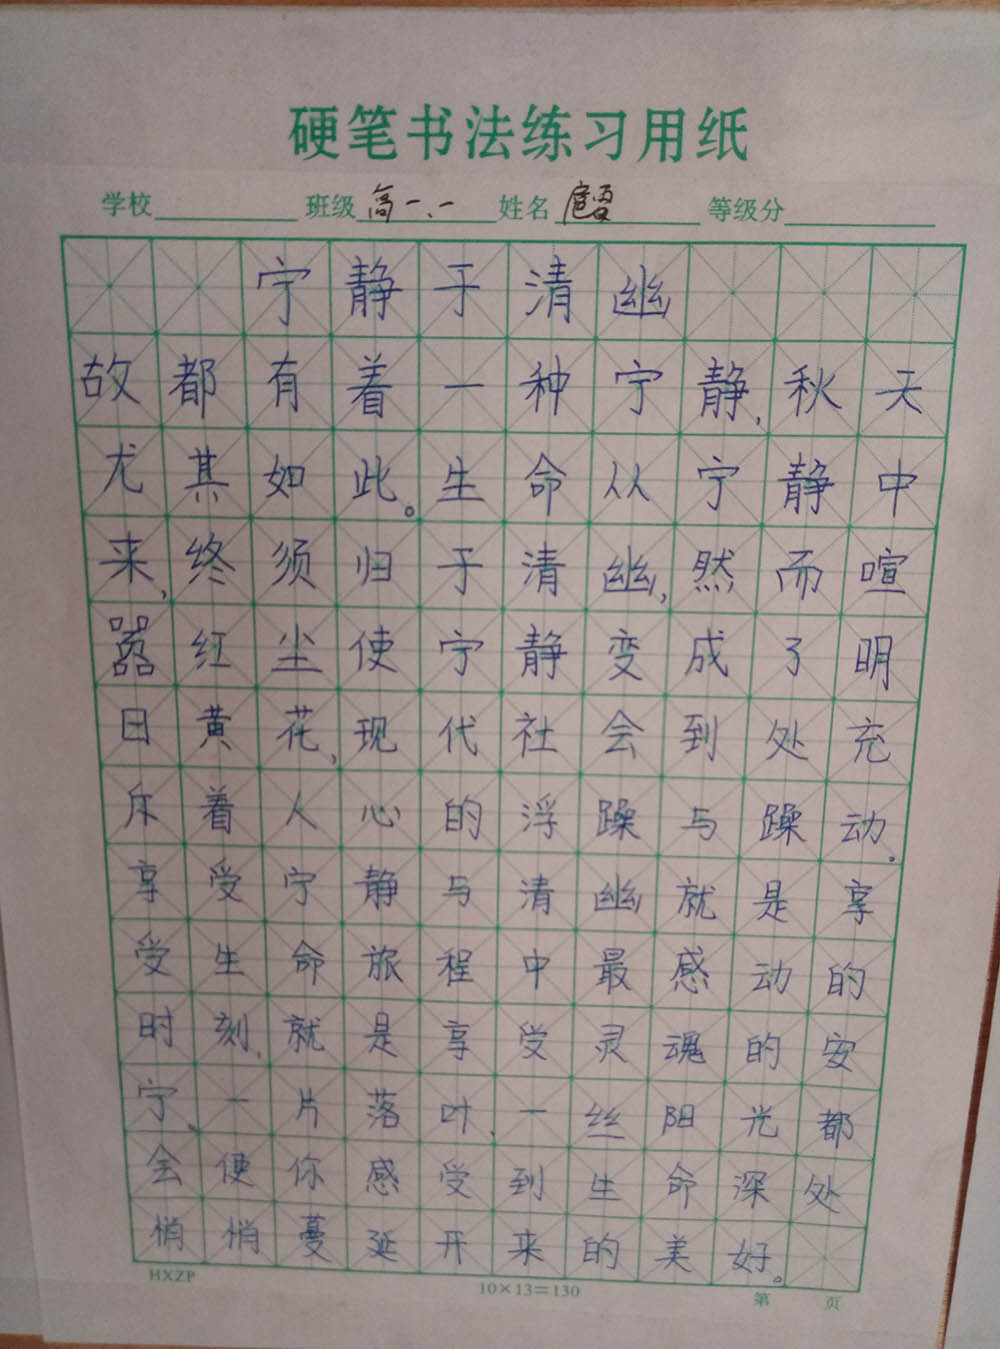 硬笔书法练习用纸
学校 班级 高一.一 姓名 等级分
宁静于清幽
故都有着一种宁静,秋天
尤其如此。生命从宁静中
来,终须归于清幽,然而喧
嚣红尘使宁静变成了明
日黄花,现代社会到处充
斥着人心的浮躁与躁动。
享受宁静与清幽就是享
受生命旅程中最感动的
时刻,就是享受灵魂的安
宁、一片落叶、一丝阳光都
会使你感受到生命深处
悄悄蔓延开来的美好。
HXZP 10×13=130 第 页